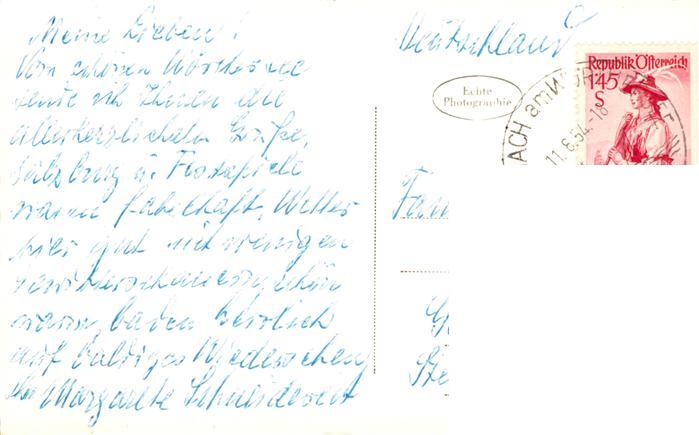 Meine Lieben!
Vom schönen Wörthersee
sende ich Ihnen die
allerherzlichsten Grüße,
Salzburg u. Festspiele
waren fabelhaft, Wetter
hier gut mit wenigen
schön
warm, baden herrlich
auf baldiges Wiedersehen
Ihre Margarete
Deutschland
Echte
Photographie
Republik Österreich
1.45
S
ACH am WÖR
11.8.54.-18
Fam